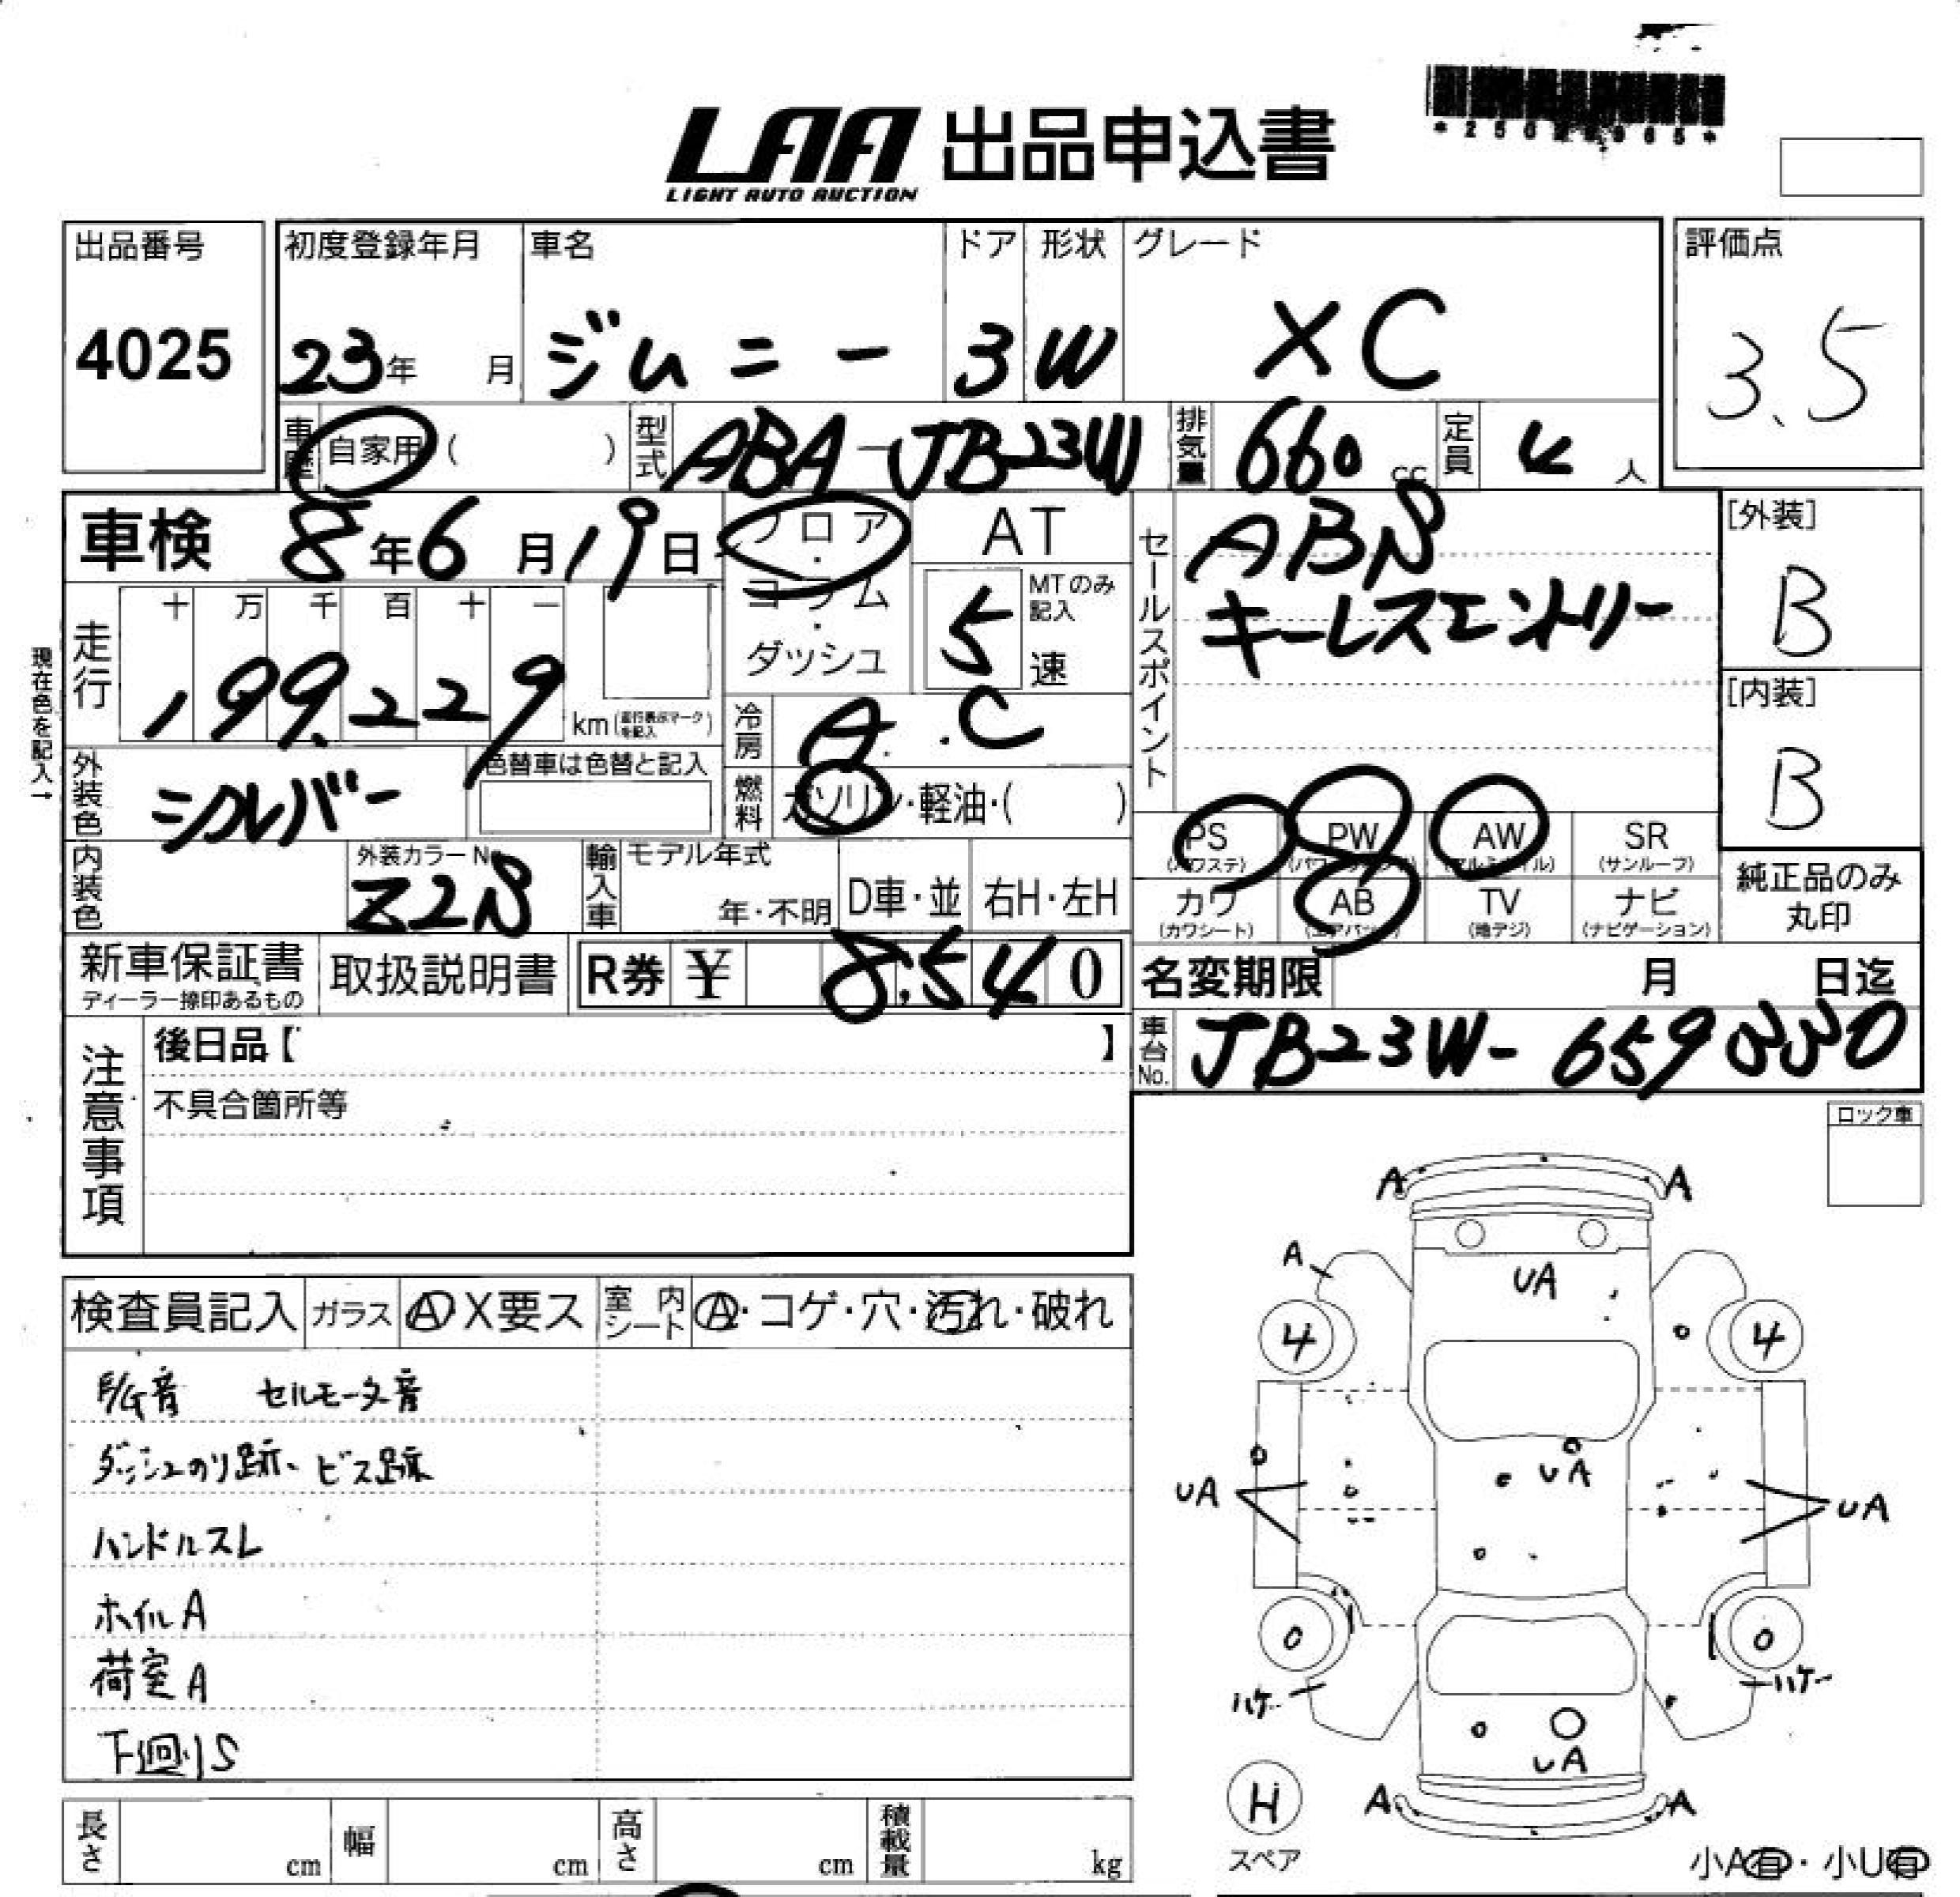 LAA 出品申込書
LIGHT AUTO AUCTION
出品番号 初度登録年月 車名 ドア 形状 グレード 評価点
4025 23年 月 ジムニー 3 W XC 3.5
車歴 自家用 ( ) 型式 ABA-JB23W 排気量 660 cc 定員 4 人
車検 8年6月19日 フロア・コラム・ダッシュ AT
5 MTのみ記入 速
セールスポイント
ABS
キーレスエントリー
[外装]
B
[内装]
B
現在色を記入→
走行 十 万 千 百 十 一
199,229 km (走行表示マークを記入)
冷房 A.C
外装色 シルバー 色替車は色替と記入
燃料 ガソリン・軽油・( )
PS (パワステ) PW (パワーウィンドウ) AW (アルミホイル) SR (サンルーフ)
カワ (カワシート) AB (エアバッグ) TV (地デジ) ナビ (ナビゲーション)
純正品のみ丸印
内装色 外装カラーNo. Z2S 輸入車 モデル年式 年・不明 D車・並 右H・左H
新車保証書 ディーラー捺印あるもの 取扱説明書 R券 ¥ 8,540
名変期限 月 日迄
車台No. JB23W-
注意事項
後日品【 】
不具合箇所等
ロック車
検査員記入 ガラス A X要ス 室内シート A・コゲ・穴・汚れ・破れ
E/G音 セルモータ音
ダッシュのり跡、ビス跡
ハンドルスレ
ホイルA
荷室A
下廻りS
A A
A
UA
4 4
UA
UA UA
0 0
ハゲ ハゲ
UA
H
スペア
A A
小A有・小U有
長さ cm 幅 cm 高さ cm 積載量 kg